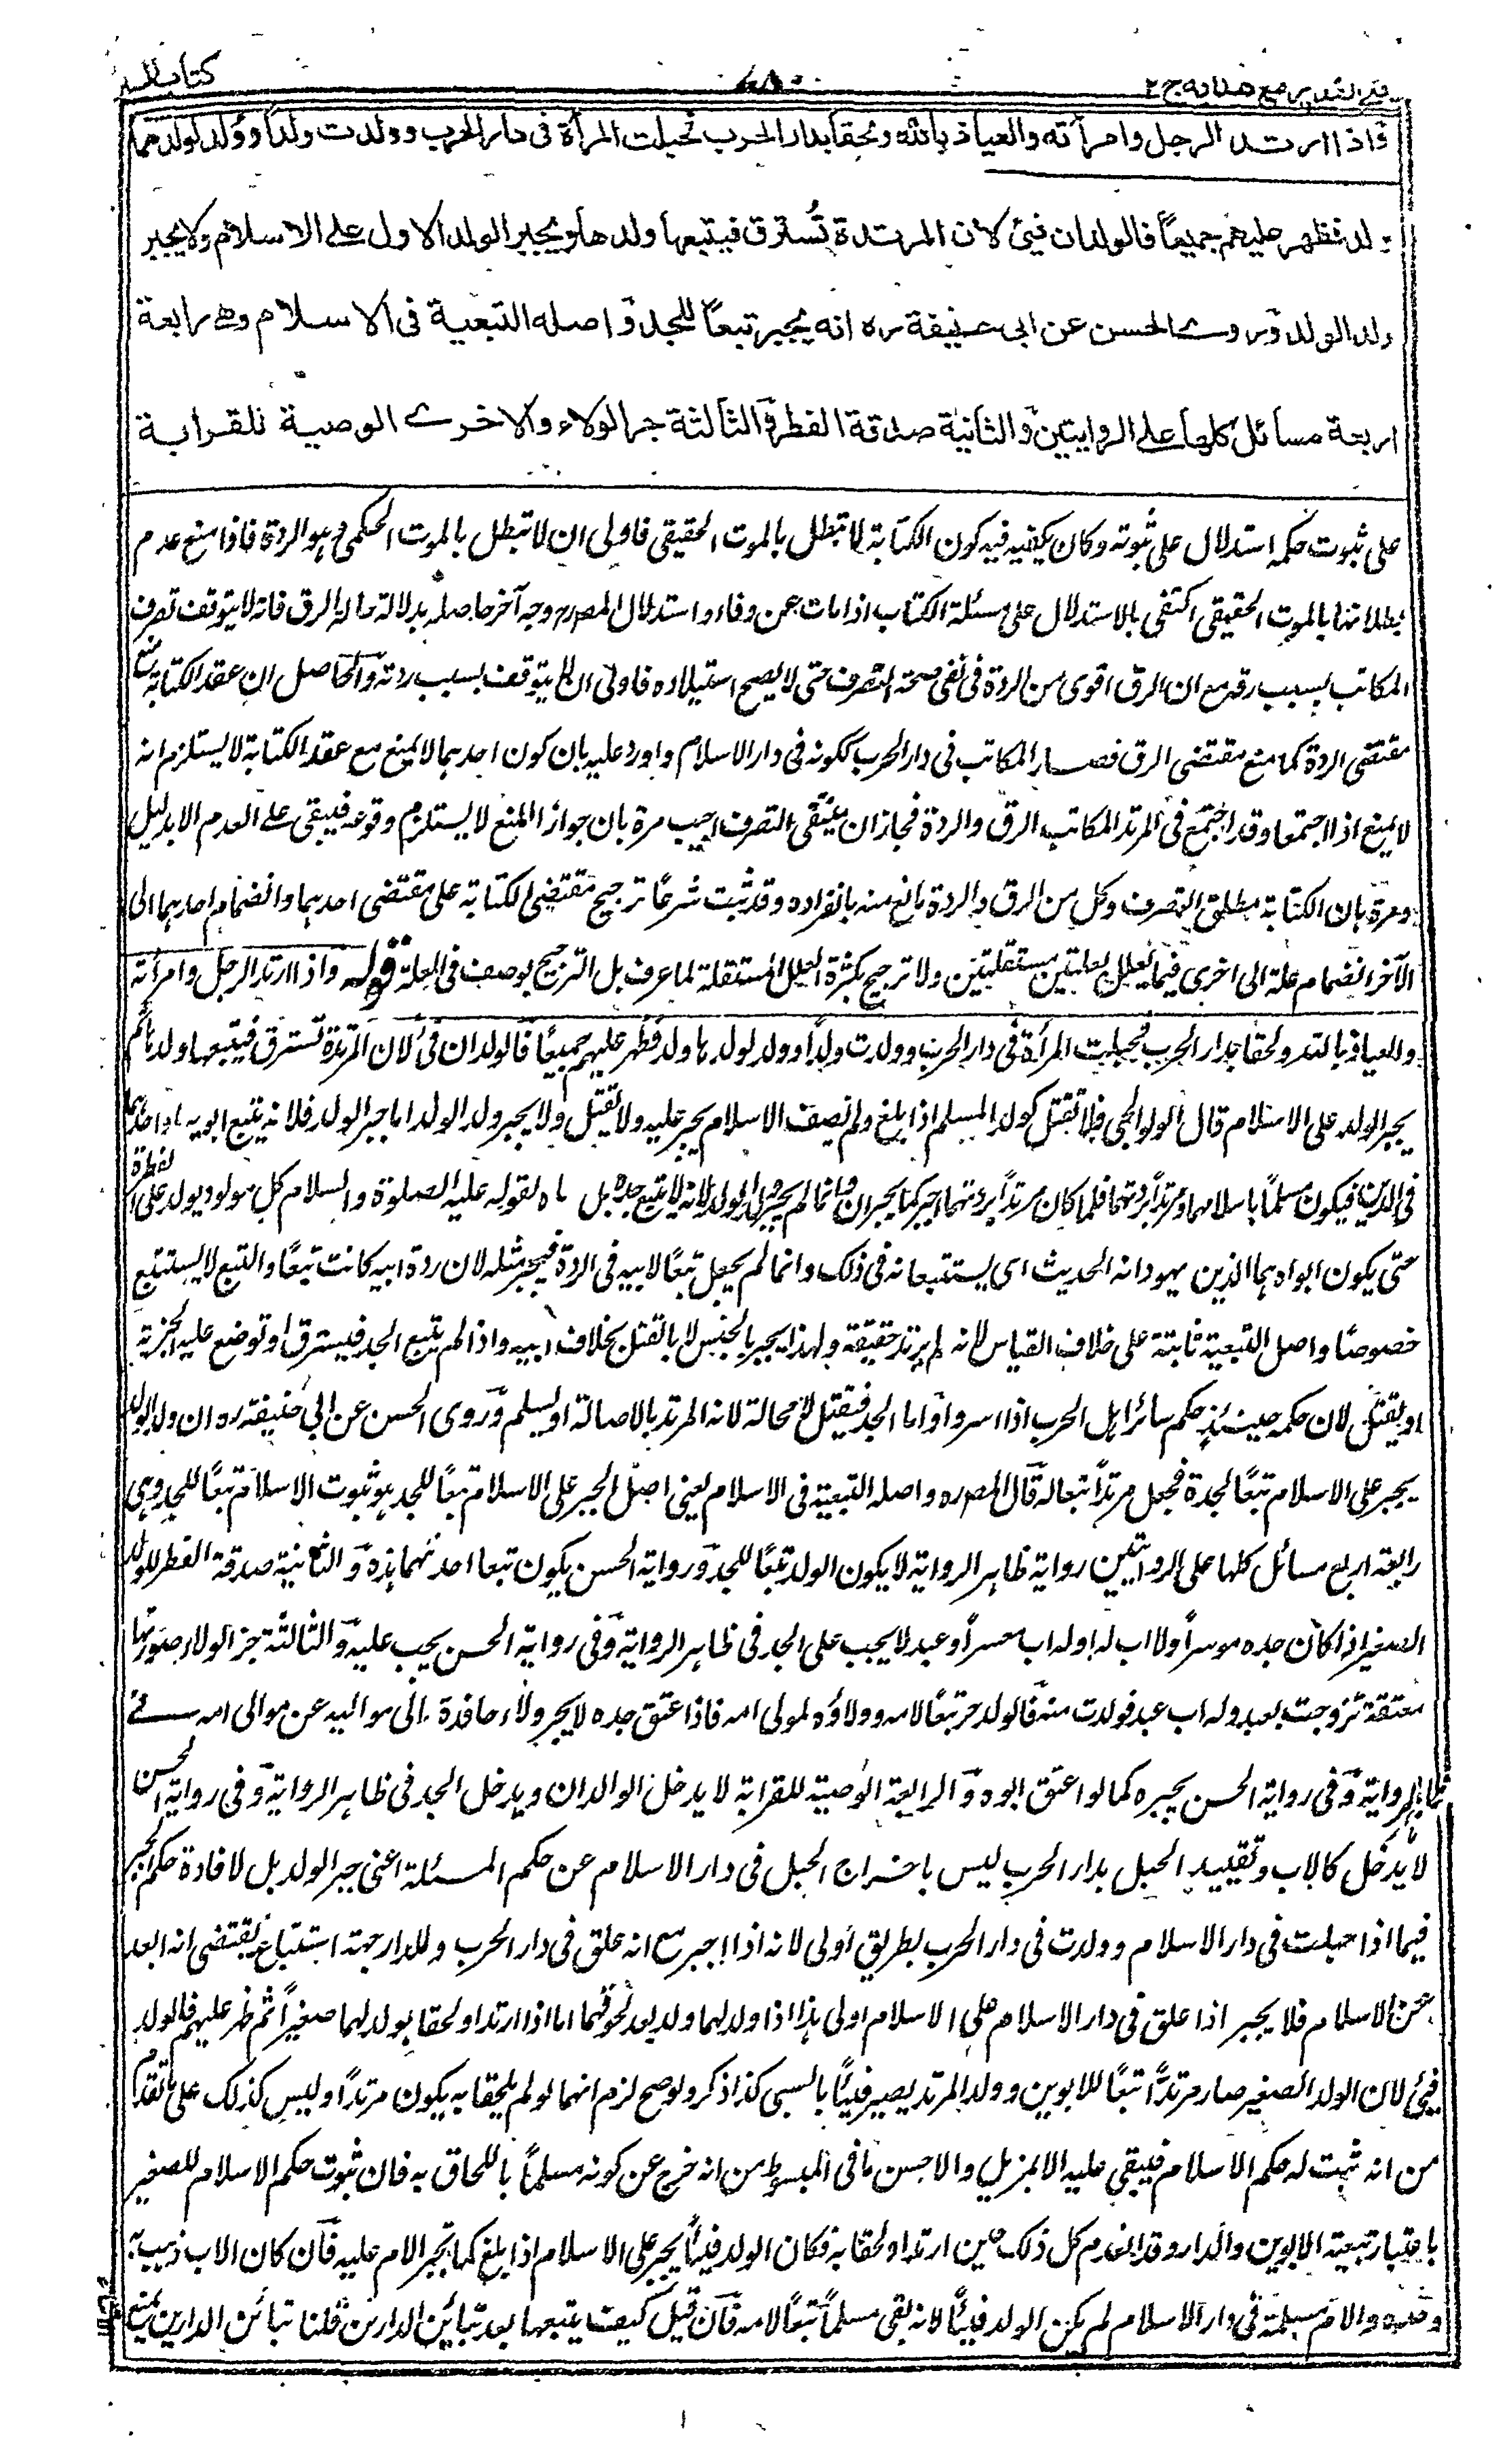 فتح القدير مع هدايه ج ٢
كتاب السير
فاذا ارتد الرجل وامرأته والعياذ بالله ولحقا بدار الحرب فحبلت المرأة فى دار الحرب وولدت ولدا وولد لولدهما
ولد فظهر عليهم جميعا فالولدان فيئ لان المرتدة تُسترق فيتبعها ولدها ويجبر الولد الاول على الاسلام ولا يجبر
ولد الولد وروى الحسن عن ابى حنيفة ره انه يجبر تبعا للجد واصله التبعية فى الاسلام وهى رابعة
اربعة مسائل كلها على الروايتين والثانية صدقة الفطر والثالثة جر الولاء والاخرى الوصية للقرابة
على ثبوت حكمه استدلال على ثبوته وكان يكفيه فيه كون الكتابة لا تبطل بالموت الحقيقى فاولى ان لا تبطل بالموت الحكمى وهو الردة فاذا منع عدم
بطلانها بالموت الحقيقى اكتفى بالاستدلال على مسئلة الكتاب اذا مات عن وفاء واستدلال المصرح وجه آخر حاصله بدلالة حالة الرق فانه لا يتوقف تصرف
المكاتب بسبب رقه مع ان الرق اقوى من الردة فى نفى صحة التصرف حتى لا يصح استيلاده فاولى ان لا يتوقف بسبب ردته والحاصل ان عقد الكتابة منع
مقتضى الردة كما منع مقتضى الرق فصار المكاتب فى دار الحرب ككونه فى دار الاسلام واورد عليه بان كون احدهما لا يمنع مع عقد الكتابة لا يستلزم انه
لا يمنع اذا اجتمعا وقد اجتمع فى المرتد المكاتب الرق والردة فجاز ان ينتفى التصرف اجيب مرة بان جواز المنع لا يستلزم وقوعه فيبقى على العدم الا بدليل
ومرة بان الكتابة مطلق التصرف وكل من الرق والردة مانع منه بانفراده وقد ثبت شرعا ترجيح مقتضى الكتابة على مقتضى احدهما وانضمام احدهما الى
الآخر انضمام علة الى اخرى فيما يعلل بعلتين مستقلتين ولا ترجيح بكثرة العلل المستقلة لما عرف بل الترجيح بوصف فى العلة قوله واذا ارتد الرجل وامرأته
والعياذ بالله ولحقا بدار الحرب فحبلت المرأة فى دار الحرب وولدت ولدا وولد لولدها ولد فظهر عليهم جميعا فالولدان فئ لان المرتدة تسترق فيتبعها ولدها ثم
يجبر الولد على الاسلام قال الولوالجى فلا تقتل كولد المسلم اذا بلغ ولم يصف الاسلام يجبر عليه ولا يقتل ولا يجبر ولد الولد اما جبر الولد فلانه يتبع ابويه او احدهما
فى الدين فيكون مسلما باسلامهما ومرتدا بردتهما فلما كان مرتدا بردتهما اجبر كما يجبران وانما لم يجبر ولد الولد لانه لا يتبع جده بل اباه لقوله عليه الصلوة والسلام كل مولود يولد على الفطرة
حتى يكون ابواه هما الذين يهودانه الحديث اى يستتبعانه فى ذلك وانما لم يجعل تبعا لابيه فى الردة فيجبر مثله لان ردة ابيه كانت تبعا والتبع لا يستتبع
خصوصا واصل التبعية ثابتة على خلاف القياس لانه لم يرتد حقيقة ولهذا يجبر بالحبس لا بالقتل بخلاف ابيه واذا لم يتبع الجد فيسترق او توضع عليه الجزية
او يقتل لان حكمه حينئذ حكم سائر اهل الحرب اذا اسروا واما الجد فيقتل لا محالة لانه المرتد بالاصالة او يسلم وروى الحسن عن ابى حنيفة ره ان ولد الولد
يجبر على الاسلام تبعا لجده فجعل مرتدا تبعا له قال المصره واصله التبعية فى الاسلام يعنى اصل الجبر على الاسلام تبعا للجد هو ثبوت الاسلام تبعا للجد وهى
رابعة اربع مسائل كلها على الروايتين رواية ظاهر الرواية لا يكون الولد تبعا للجد ورواية الحسن يكون تبعا احدٰهما هذه والثانية صدقة الفطر للولد
الصغير اذا كان جده موسرا ولا اب له او له اب معسر او عبد لا يجب على الجد فى ظاهر الرواية وفى رواية الحسن يجب عليه والثالثة جر الولاء صورتها
معتقة تزوجت بعبد وله اب عبد فولدت منه فالولد حر تبعا لامه وولاؤه لمولى امه فاذا عتق جده لا يجر ولاء حافدة الى مواليه عن موالى امه فى
ظاهر الرواية وفى رواية الحسن يجره كما لو اعتق ابوه والرابعة الوصية للقرابة لا يدخل الوالدان ويدخل الجد فى ظاهر الرواية وفى رواية الحسن
لا يدخل كالاب وتقييد الحبل بدار الحرب ليس باخراج الحبل فى دار الاسلام عن حكم المسئلة اعنى جبر الولد بل لافادة حكم الجبر
فيما اذا حبلت فى دار الاسلام وولدت فى دار الحرب بطريق اولى لانه اذا اجبر مع انه علق فى دار الحرب وللدار جهة استتباع يقتضى انه ابعد
عن الاسلام فلا يجبر اذا علق فى دار الاسلام على الاسلام اولى هذا اذا ولد لهما ولد بعد لحوقهما اما اذا ارتدا ولحقا بولد لهما صغيرا ثم ظهر عليهم فالولد
فيئ لان الولد الصغير صار مرتدا تبعا للابوين وولد المرتد يصير فيئا بالسبى كذا ذكر ولو صح لزم انهما لو لم يلحقا به يكون مرتدا وليس كذلك على ما تقدم
من انه ثبت له حكم الاسلام فيبقى عليه الا بمزيل والاحسن ما فى المبسوط من انه خرج عن كونه مسلما باللحاق به فان ثبوت حكم الاسلام للصغير
باعتبار تبعية الابوين والدار وقد انعدم كل ذلك حين ارتدا ولحقا به فكان الولد فيئا يجبر على الاسلام اذا بلغ كما تجبر الام عليه فان كان الاب ذهب به
وحده والام مسلمة فى دار الاسلام لم يكن الولد فيئا لانه بقى مسلما تبعا لامه فان قيل كيف يتبعها بعد تباين الدارين قلنا تبائن الدارين يمنع